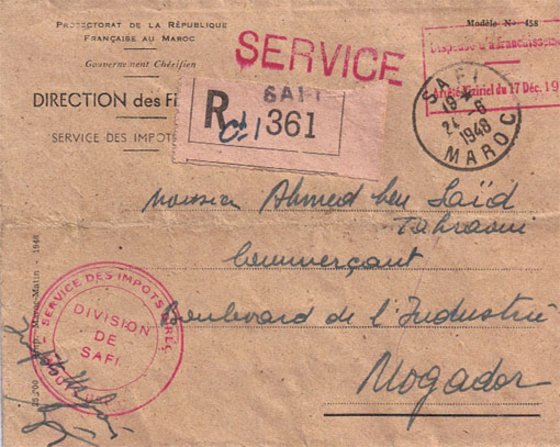 PROTECTORAT DE LA RÉPUBLIQUE
FRANÇAISE AU MAROC
Gouvernement Chérifien
DIRECTION des FI
SERVICE DES IMPOTS
SERVICE
Modèle No 458
Dispensé d'affranchissement
Arrêté Viziriel du 17 Déc. 19
SAFI
R 361
SAFI
19
24 -6
1948
MAROC
Monsieur Ahmed ben Saïd
Tahraoui
Commerçant
Boulevard de l'Industrie
Mogador
SERVICE DES IMPOTS
DIVISION
DE
SAFI